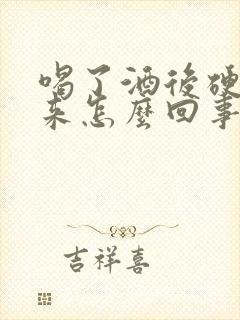 喝了酒後硬
来怎麼回事
吉祥喜